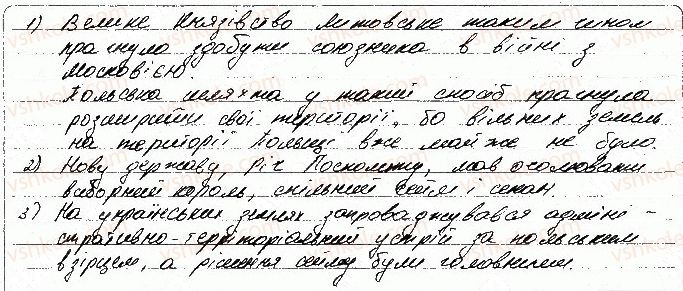 1) Велике Князівство Литовське таким чином
прагнуло здобути союзника в війні з
Московією.
Польська шляхта у такий спосіб прагнула
розширити свої території, бо вільних земель
на території Польщі вже майже не було.
2) Нову державу, Річ Посполиту, мав очолювати
виборний король, спільний сейм і сенат.
3) На українських землях запроваджувався адміні-
стративно-територіальний устрій за польським
взірцем, а рішення сейму були головними.